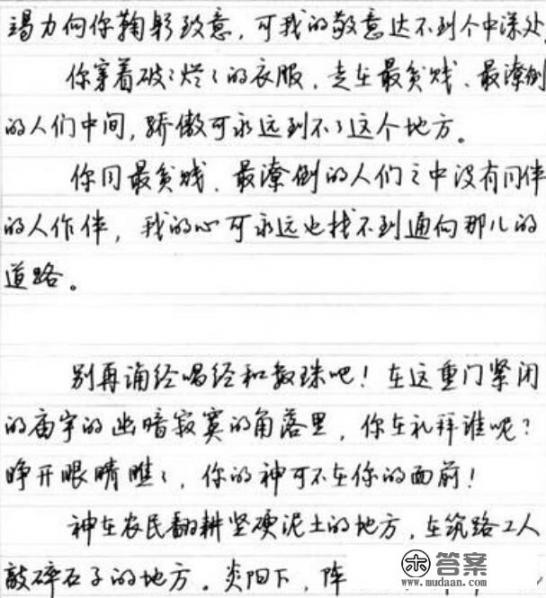 竭力向你鞠躬致意，可我的敬意达不到个中深处
你穿着破破烂烂的衣服，走在最贫贱、最潦倒
的人们中间，骄傲可永远到不了这个地方。
你同最贫贱、最潦倒的人们之中没有同伴
的人作伴，我的心可永远也找不到通向那儿的
道路。
别再诵经唱经和数珠吧！在这重门紧闭
的庙宇的幽暗寂寞的角落里，你在礼拜谁呢？
睁开眼睛瞧瞧，你的神可不在你的面前！
神在农民翻耕坚硬泥土的地方，在筑路工人
敲碎石子的地方。炎阳下，阵
答案
www.mudaan.com